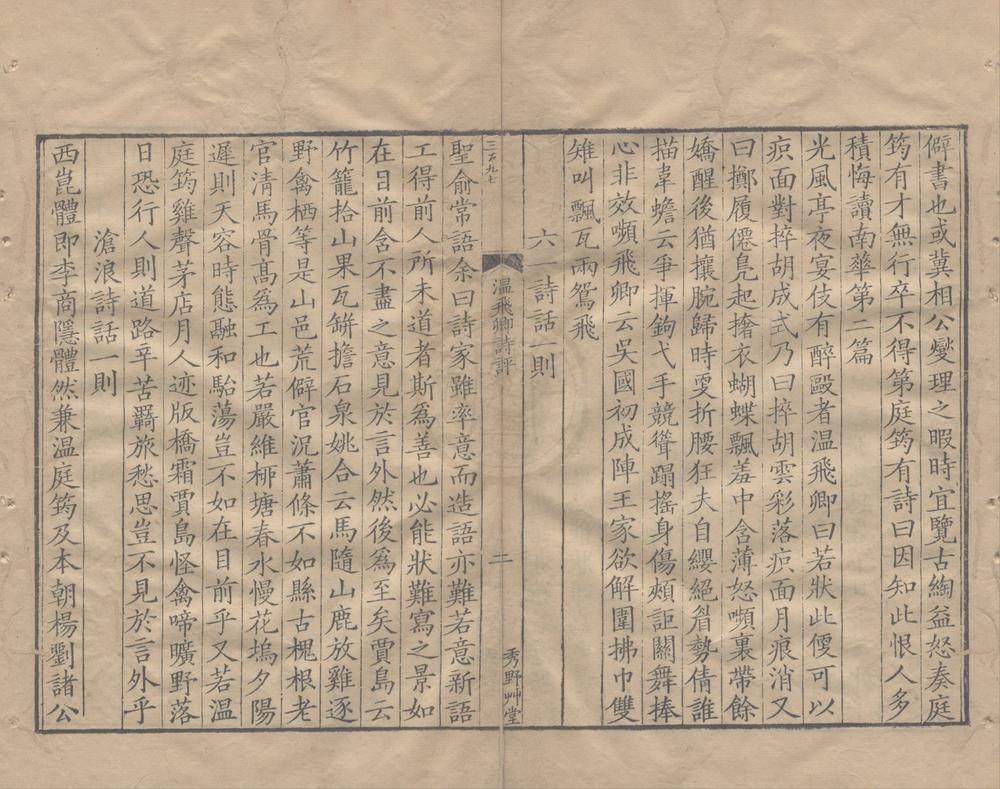 僻書也或冀相公燮理之暇時宜覽古綯益怒奏庭
筠有才無行卒不得第庭筠有詩曰因知此恨人多
積悔讀南華第二篇
光風亭夜宴伎有醉毆者温飛卿曰若狀此便可以
疻面對捽胡成式乃曰捽胡雲彩落疻面月痕消又
曰擲履僊鳧起撦衣蝴蝶飄羞中含薄怒嚬裏帶餘
嬌醒後猶攘腕歸時更折腰狂夫自纓絕眉勢倩誰
描韋蟾云爭揮鉤弋手競聳蹋搖身傷頰詎關舞捧
心非效嚬飛卿云吳國初成陣王家欲解圍拂巾雙
雉叫飄瓦兩鴛飛
六一詩話一則
温飛卿詩評
二
秀野艸堂
聖俞常語余曰詩家雖率意而造語亦難若意新語
工得前人所未道者斯爲善也必能狀難寫之景如
在日前含不盡之意見於言外然後爲至矣賈島云
竹籠拾山果瓦缾擔石泉姚合云馬隨山鹿放雞逐
野禽栖等是山邑荒僻官況蕭條不如縣古槐根老
官淸馬骨高為工也若嚴維栁塘春水慢花塢夕陽
遲則天容時態融和駘蕩豈不如在目前乎又若温
庭筠雞聲茅店月人迹版橋霜賈島怪禽啼曠野落
日恐行人則道路辛苦羇旅愁思豈不見於言外乎
滄浪詩話一則
西崑體即李商隱體然兼温庭筠及本朝楊劉諸公